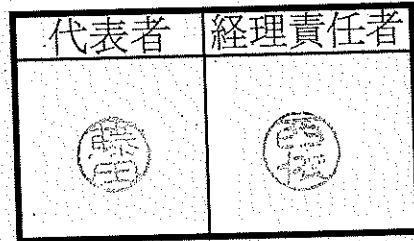 代表者 経理責任者
藤田